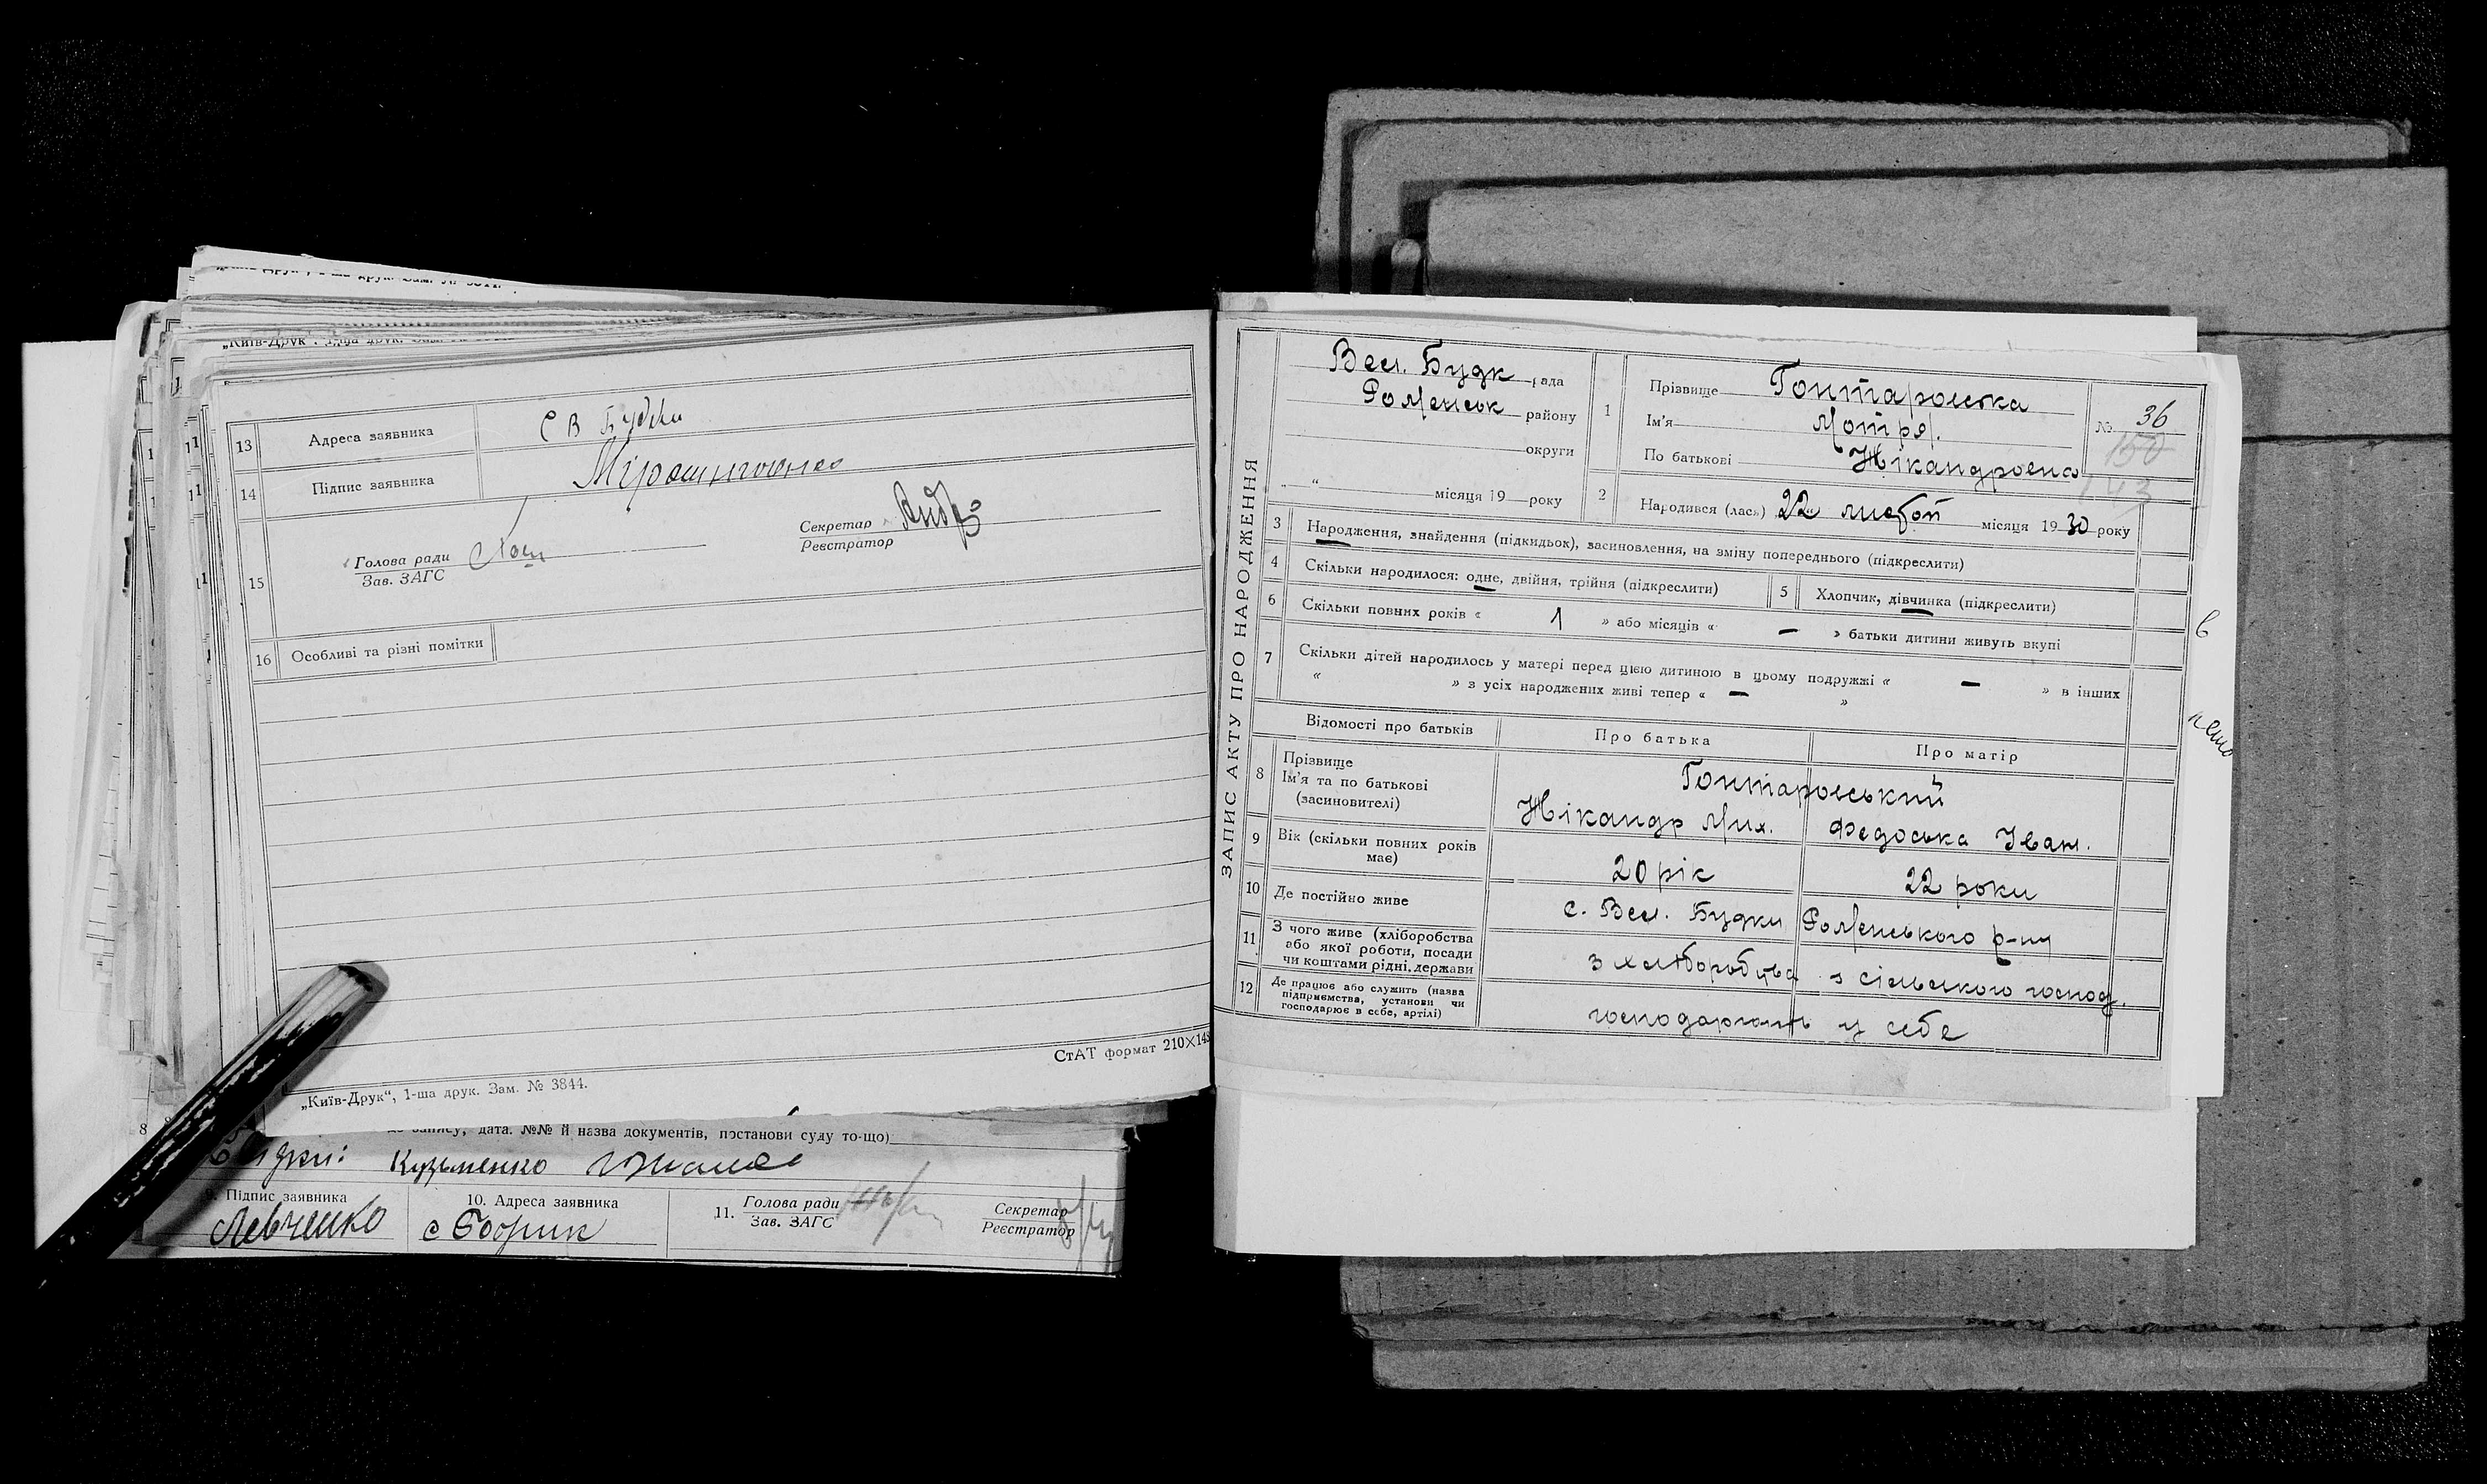 „Київ-Друк“, 1-ша друк. Зам. №
13 Адреса заявника С В Будки
14 Підпис заявника
15 Голова ради
Зав. ЗАГС
Секретар
Реєстратор
16 Особливі та різні помітки
СтАТ формат 210×148
„Київ-Друк“, 1-ша друк. Зам. № 3844.
запису, дата. №№ й назва документів, постанови суду то-що)
Кузьменко
9. Підпис заявника Левченко
10. Адреса заявника
11. Голова ради
Зав. ЗАГС
Секретар
Реєстратор
ЗАПИС АКТУ ПРО НАРОДЖЕННЯ
Вел. Будк рада
Роменськ району
округи
„ “ місяця 19 року
1 Прізвище Гонтаровська
Ім'я Мотря.
По батькові Нікандровна
№ 36
150
143
2 Народився (лась) 22 листоп місяця 1930 року
3 Народження, знайдення (підкидьок), засиновлення, на зміну попереднього (підкреслити)
4 Скільки народилося: одне, двійня, трійня (підкреслити)
5 Хлопчик, дівчинка (підкреслити)
6 Скільки повних років « 1 » або місяців « — » батьки дитини живуть вкупі
7 Скільки дітей народилось у матері перед цією дитиною в цьому подружжі « — » в інших
« » з усіх народжених живі тепер « — »
Відомості про батьків Про батька Про матір
8 Прізвище
Ім'я та по батькові
(засиновителі)
Гонтаровський
Нікандр Мих. Федоська Іван.
9 Вік (скільки повних років має) 20 рік 22 роки
10 Де постійно живе с. Вел. Будки Роменського р-ну
11 З чого живе (хліборобства
або якої роботи, посади
чи коштами рідні, держави
з хліборобства з сільського господ.
12 Де працює або служить (назва
підприємства, установи чи
господарює в себе, артілі)
господарюють у себе